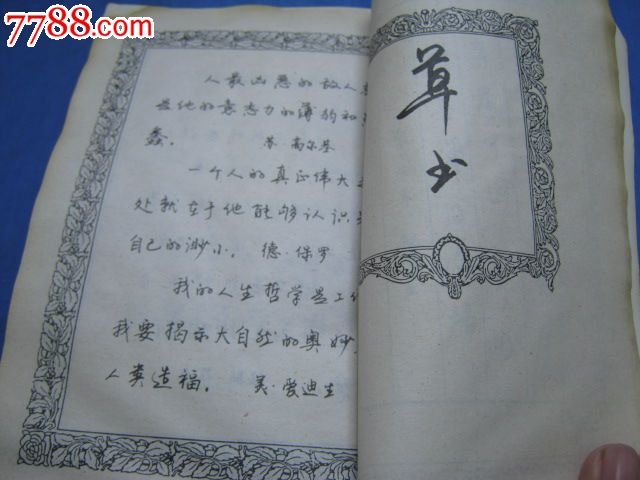 7788.com
中国收藏热线
人最凶恶的敌人
是他的意志力的薄弱和
蠢。 苏·高尔基
一个人的真正伟大之
处就在于他能够认识
自己的渺小。 德·保罗
我的人生哲学是工作
我要揭示大自然的奥妙
人类造福。 美·爱迪生
草书